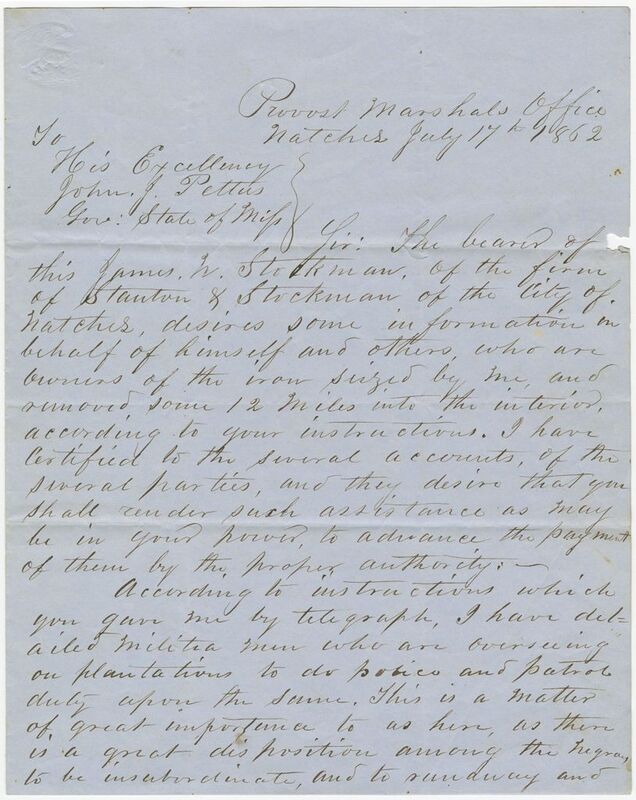 Provost Marshals Office
Natchez July 17th 1862
To
His Excellency
John. J. Pettus
Gov: State of Miss
Sir: The bearer of
this James. W. Stockman, of the firm
of Stanton & Stockman of the City of
Natchez, desires some information in
behalf of himself and others, who are
owners of the iron seized by me, and
removed some 12 Miles into the interior,
according to your instructions. I have
Certified to the several accounts, of the
several parties, and they desire that you
shall render such assistance as may
be in your power, to advance the payment
of them by the proper authority:~
According to instructions which
you gave me by telegraph, I have det=
ailed Militia men who are overseeing
on plantations to do police and patrol
duty upon the same. This is a matter
of great importance to us here, as there
is a great disposition among the Negroes
to be insubordinate, and to runaway and